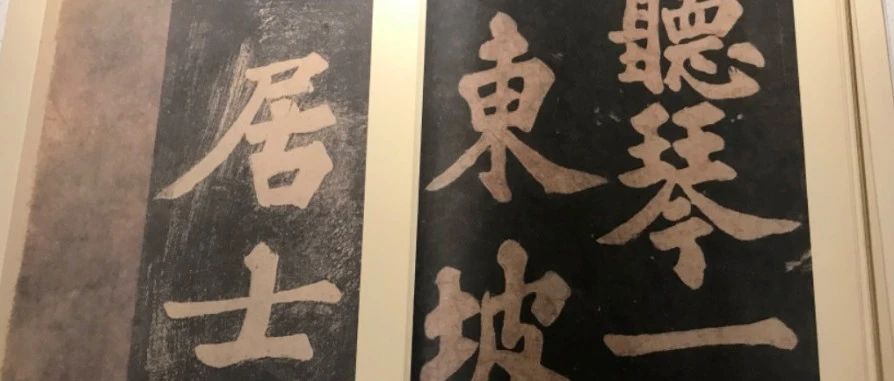 聽琴一
東坡
居士